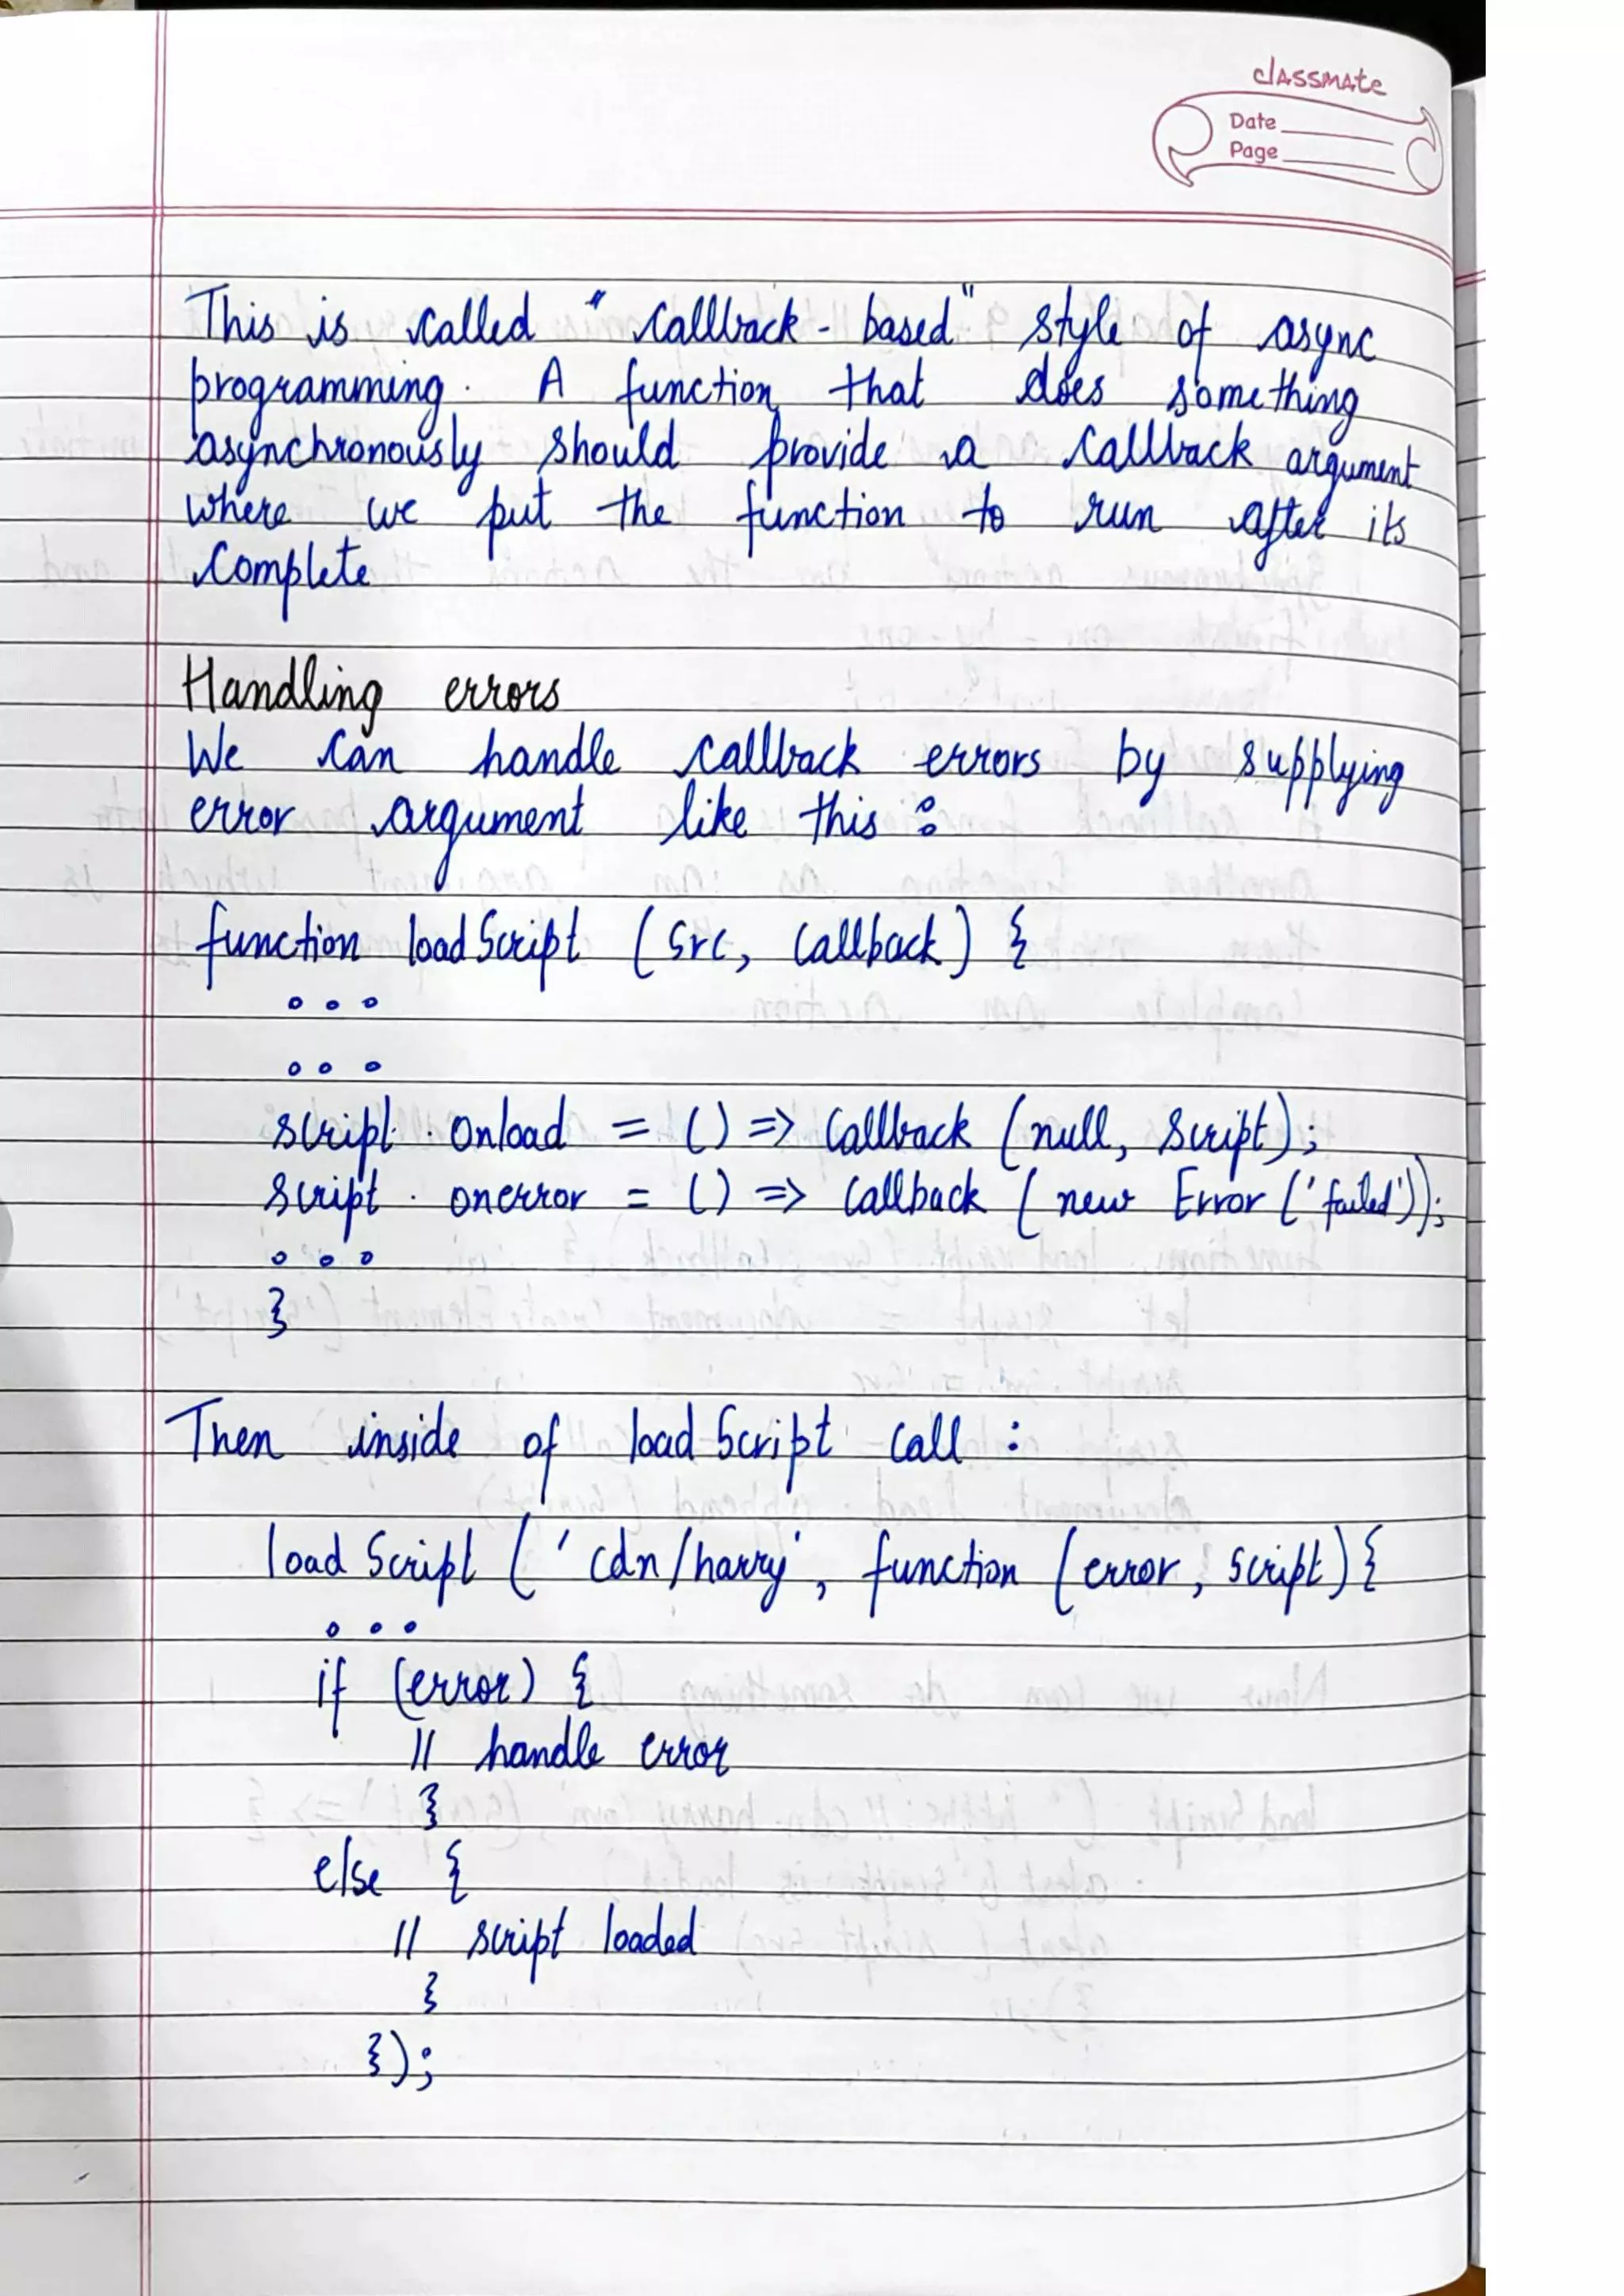 classmate
Date
Page
This is called "callback-based" style of async
programming. A function that does something
asynchronously should provide a callback argument
where we put the function to run after its
complete
Handling errors
We can handle callback errors by supplying
error argument like this :
function loadScript (src, callback) {
...
...
script . onload = () => callback (null, script);
script . onerror = () => callback (new Error ('failed'));
...
}
Then inside of loadScript call :
loadScript ('cdn/harry', function (error, script) {
...
if (error) {
// handle error
}
else {
// script loaded
}
});